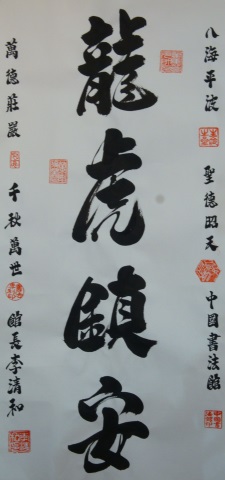 八海平定 聖德昭天 中国書法館
龍虎鎮安
萬德莊嚴 千秋萬世 館長李清和